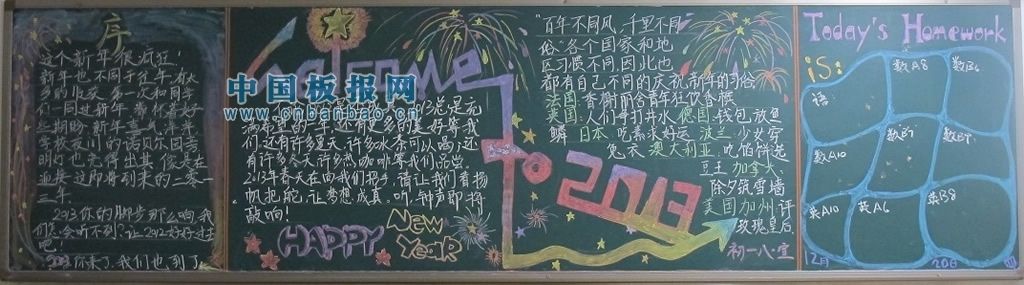 序
这个新年很疯狂!
新年也不同于往年,有太
多的收获。第一次和同学
们一同过新年,带怀着好
些期盼。新年喜气洋洋
Welcome
中国板报网
www.cnbanbao.cn
满希望的一年,还有更多的美好等我
们,还有许多夏天,许多冰茶可以喝;还
有许多冬天,许多热咖啡等我们品尝。
2013年春天在向我们招手,请让我们着扬
帆把舵,让梦想成真。听,钟声即将
敲响!
HAPPY
New
Year
"百年不同风,千里不同
俗"各个国家和地
区习惯不同,因此也
都有自己不同的庆祝新年的习俗
法国:香榭丽舍青年狂饮香槟
英国:人们争打井水 德国:钱包放鱼
鳞 日本:吃荞求好运 波兰:少女穿
兔衣 澳大利亚:吃馅饼选
豆王 加拿大:
除夕筑雪墙
美国加州:评
玫瑰皇后
To 2013
初一八·宣
Today's Homework
is:
语
数A8
数B6
数A10
数B7
英A10
英A6
英B8
12月
20日
四
2013你的脚步那么响,我
们怎会听不到?让2012好好过去
吧!
2013你来了,我们也到了